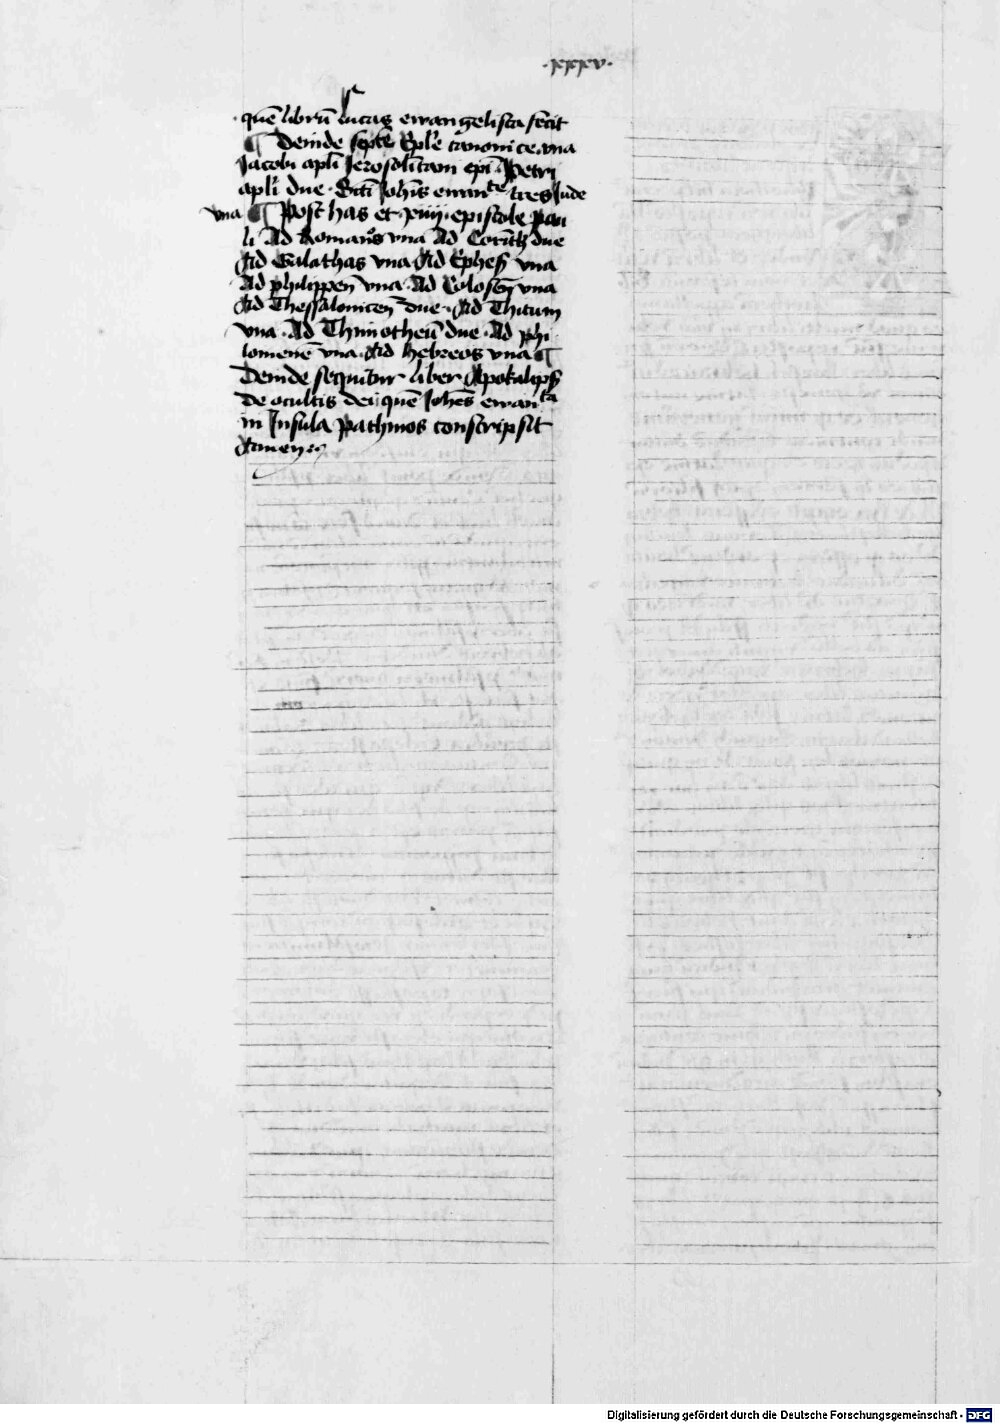 ·xxxv·
quē librū lucas ewangelista fecit
¶ Deinde septē Ep̄le canonice vna
Jacobi apl̄i Jerosolitam ep̄i Petri
apl̄i due · Joh̄is ewan^te tres Jude
vna ¶ Post has et xiiii epistole pau
li Ad Romanos vna Ad Corinth due
Ad Galathas vna Ad Ephes vna
Ad philippen̄ vna · Ad Colosen̄ vna
Ad Thessalonicen̄ due · Ad Thitum
vna · Ad Thimotheū due · Ad phi
lomenē vna · Ad hebreos vna ¶
Deinde sequitur liber Apokalips
De ocultis dei quē Joh̄es ewan^ta
in Insula Pathmos conscripsit
Amen
Digitalisierung gefördert durch die Deutsche Forschungsgemeinschaft - DFG